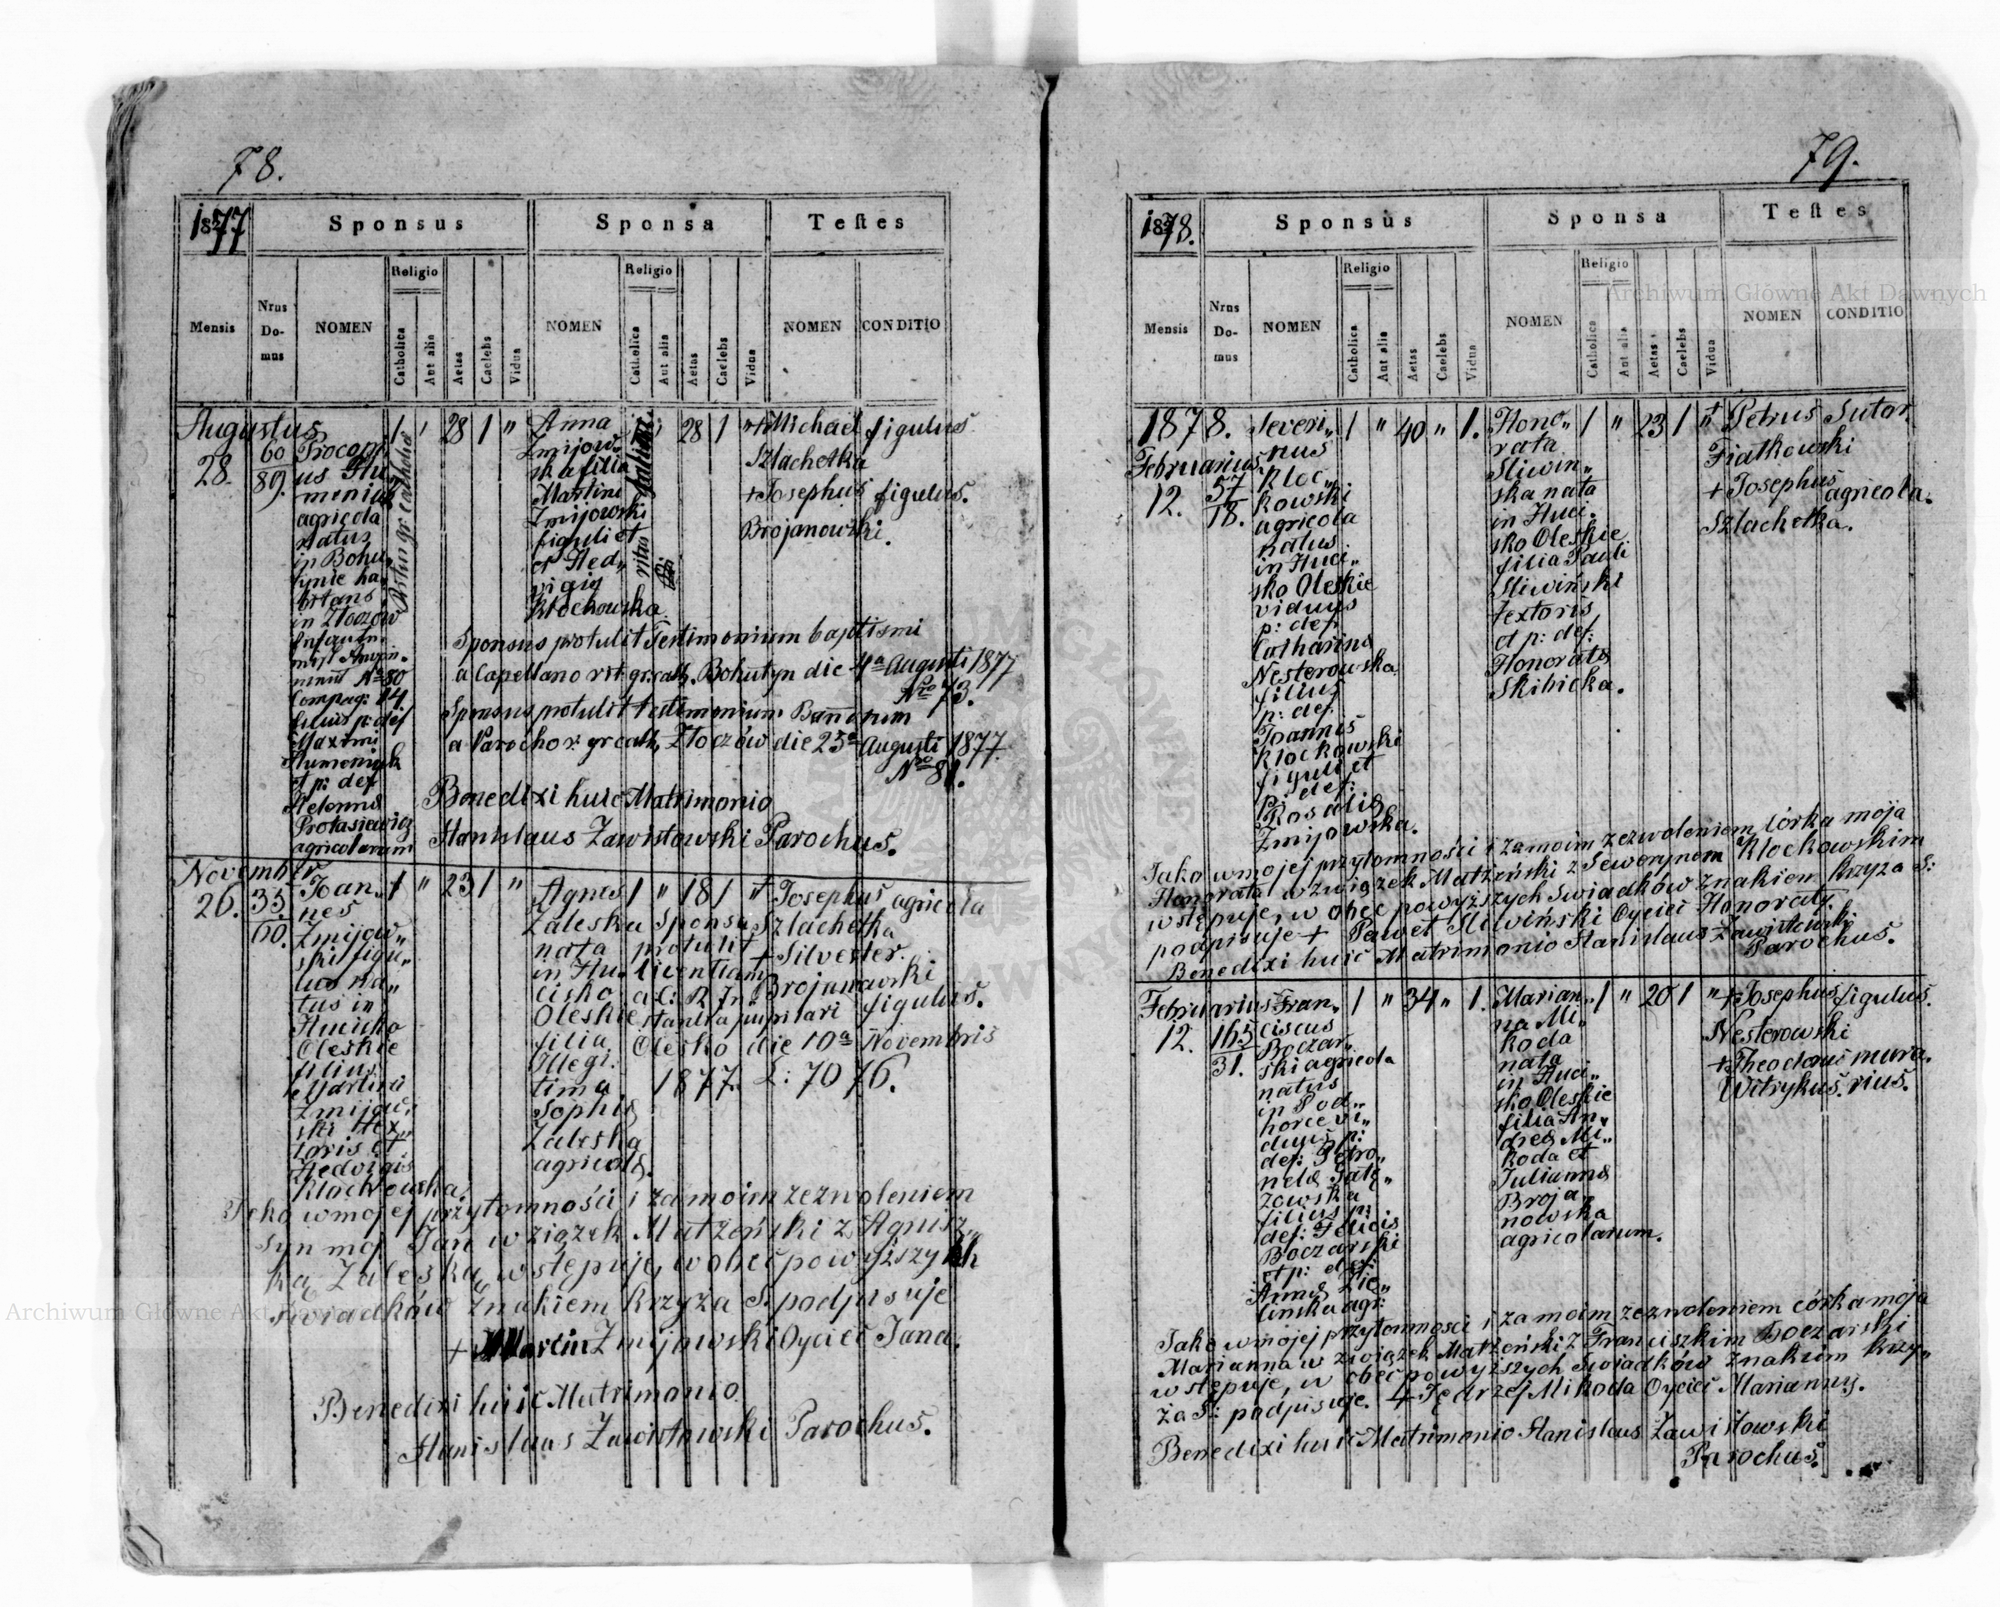 78.
1877
Sponsus
Sponsa
Testes
Mensis
Nrus Do- mus
NOMEN
Religio
Catholica
Aut alia
Aetas
Caelebs
Vidua
NOMEN
Religio
Catholica
Aut alia
Aetas
Caelebs
Vidua
NOMEN
CONDITIO
Augustus
28.
60
89.
Procopi
us Hu
meniuk
agricola
natus
in Bohu
tynie ha
bitans
in Złoczów
Compag: 14.
filius p: def
Maxımi
Humeniuk
et p: def
Helenae
Protasiewicz
agricolarum
1 " 28 1 "
Anna
Żmijow
ska filia
Martini
Żmijowski
figuli et
et Hed„
vigis
Kłochowska
28 1 "
+ Michael figulus
Szlachetka
+ Josephus figulus.
Brojanowski.
Sponsus protulit Testimonium baptismi
a Capellano rit. gr. cath. Bohutyn die 4ta Augusti 1877
Nro 73.
Sponsus protulit testimonium Bannorum
a Parocho r. gr cath. Złoczów die 23a Augusti 1877.
Nro 81.
Benedixi huic Matrimonio
Stanislaus Zawistowski Parochus.
November
26.
35.
60.
Joan„
nes
Żmijow„
ski figu„
lus na„
tus in
Hucisko
Oleskie
filius
Martini
Żmijow„
ski tex„
toris et
Hedvigis
Kłochowska.
1 " 23 1 "
Agnes
Zaleska
nata
in Hu„
cisko
Oleskie
filia
Illegi„
tima
Sophis
Zaleska
agricols.
1 " 18 1 "
Sponsa
protulit
licentiam
a C: R. In„
stantia pupilari
Olesko die 10a Novembris
1877. L: 7076.
+ Josephus agricola
Szlachetka
+ Silvester
Brojanowski
figulus.
Jako w mojej przytomności i za moim zezwoleniem
syn mój Jan w związek Małżeński z Agnisz„
ką Zaleską wstępuje, w obec powyższych
świadków znakiem krzyża S. podpisuje
+ Marcin Żmijowski Oyciec Jana.
Benedixi huic Matrimonio
Stanislaus Zawistowski Parochus.
79.
1878.
Sponsus
Sponsa
Testes
Mensis
Nrus Do- mus
NOMEN
Religio
Catholica
Aut alia
Aetas
Caelebs
Vidua
NOMEN
Religio
Catholica
Aut alia
Aetas
Caelebs
Vidua
NOMEN
CONDITIO
1878.
Februarius
12.
57
18.
Severi„
nus
Kloc„
kowski
agricola
natus
in Huci„
sko Oleskie
viduus
p: def
Catharins
Nesterowska
filius
p: def.
Joannis
Klockowski
figuli et
p: def:
Rosalis
Żmijowska.
1 " 40 " 1.
Hono„
rata
Sliwin„
ska nata
in Huci„
sko Oleskie
filia Pauli
Sliwiński
textoris
et p: def:
Honorats
Skibicka.
1 " 23 1 "
+ Petrus Sutor.
Fiałkowski
+ Josephus agricola.
Szlachetka.
Jako w mojej przytomności i za moim zezwoleniem córka moja
Honorata w związek Małżeński z Sewerynem Klockowskim
wstępuje, w obec powyższych świadków znakiem krzyża S:
podpisuje + Paweł Sliwiński Oyciec Honoraty.
Benedixi huic Matrimonio Stanislaus Zawistowski
Parochus.
Februarius
12.
165
31.
Fran„
ciscus
Boczar„
ski agricola
natus
in Pod„
horce vi„
duus p:
def: Petro„
nels
zowska
filius p:
def: Felicis
Boczarski
et p: def:
Annis Zie„
linska agr:
1 " 34 " 1.
Marian„
na Mi„
koda
nata
in Huci„
sko Oleskie
filia An„
dres Mi„
koda et
Julianns
Broja„
nowska
agricolarum.
1 " 20 1 "
+ Josephus figulus.
Nesterowski
+ Theodorus mura„
Witrykus. rius.
Jako w mojej przytomności i za moim zezwoleniem córka moja
Marianna w związek Małżeński z Franciszkiem Boczarski
wstępuje, w obec powyższych świadków znakiem krzy„
ża S: podpisuje. + Jędrzej Mikoda Oyciec Marianny.
Benedixi huic Matrimonio Stanislaus Zawistowski
Parochus.
Archiwum Główne Akt Dawnych
Archiwum Główne Akt Dawnych